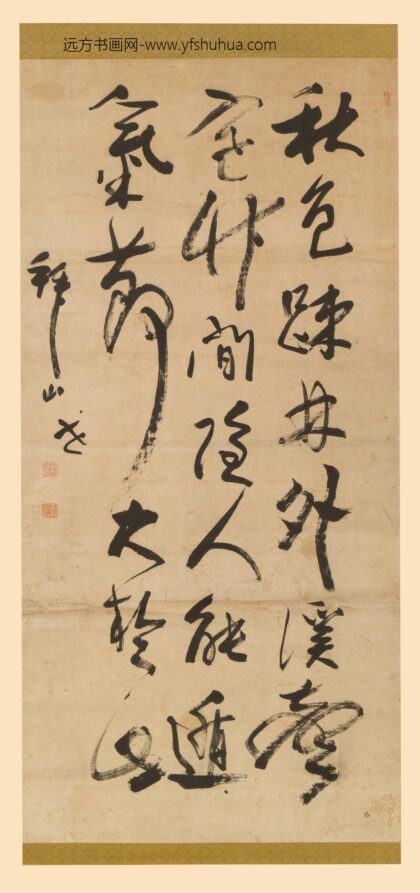 远方书画网-www.yfshuhua.com
秋色疎林外溪聲
密竹間隱人能遁
氣節大於山
山書